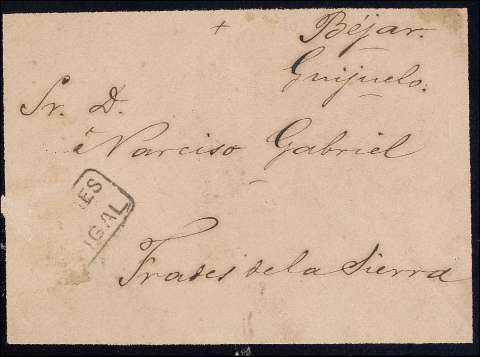 +
Béjar.
Guijuelo.
Sr. D.
Narciso Gabriel
ES
IGAL
Frades de la Sierra